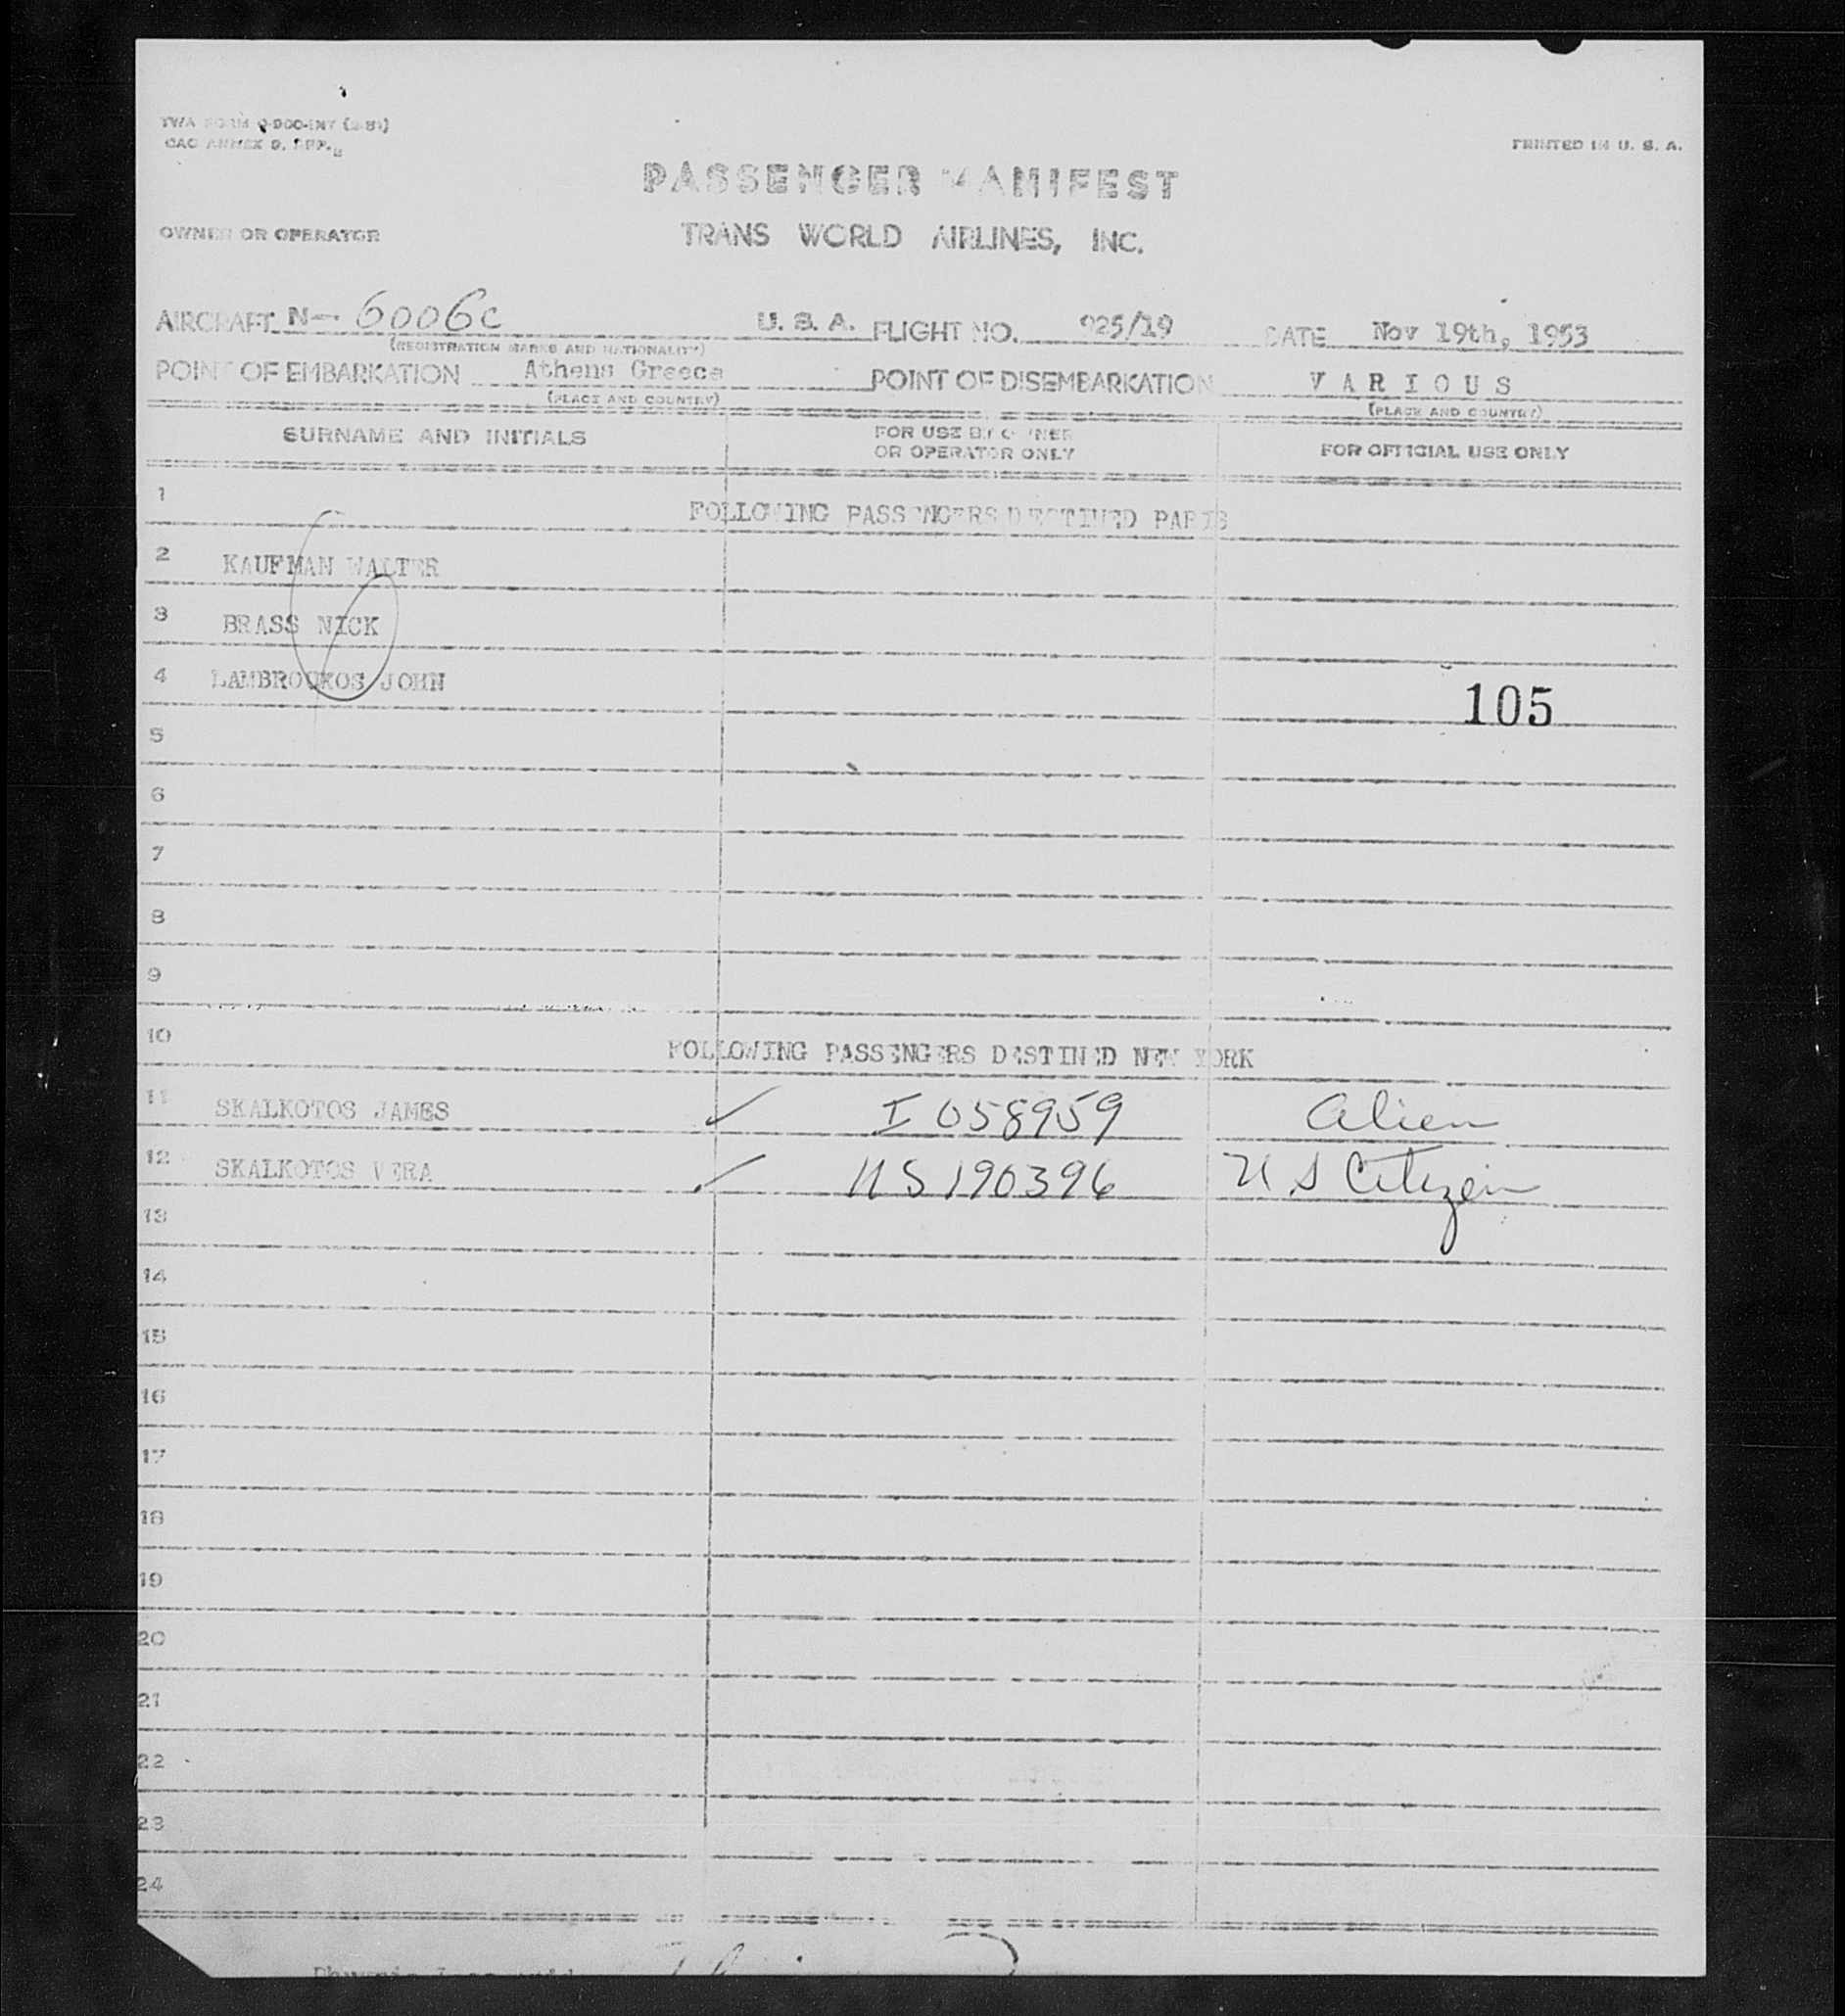 TWA FORM
CAO ANNEX 9, APP.
PRINTED IN U. S. A.
PASSENGER MANIFEST
OWNER OR OPERATOR
TRANS WORLD AIRLINES, INC.
AIRCRAFT N- 6006C U. S. A. FLIGHT NO. 925/19 DATE Nov 19th, 1953
(REGISTRATION MARKS AND NATIONALITY)
POINT OF EMBARKATION Athens Greece POINT OF DISEMBARKATION VARIOUS
(PLACE AND COUNTRY) (PLACE AND COUNTRY)
SURNAME AND INITIALS FOR USE BY OWNER OR OPERATOR ONLY FOR OFFICIAL USE ONLY
1 FOLLOWING PASSENGERS DESTINED PARIS
2 KAUFMAN WALTER
3 BRASS NICK
4 LAMBROUKOS JOHN
105
5
6
7
8
9
10 FOLLOWING PASSENGERS DESTINED NEW YORK
11 SKALKOTOS JAMES ✓ I 058959 Alien
12 SKALKOTOS VERA ✓ US 190396 U S Citizen
13
14
15
16
17
18
19
20
21
22
23
24